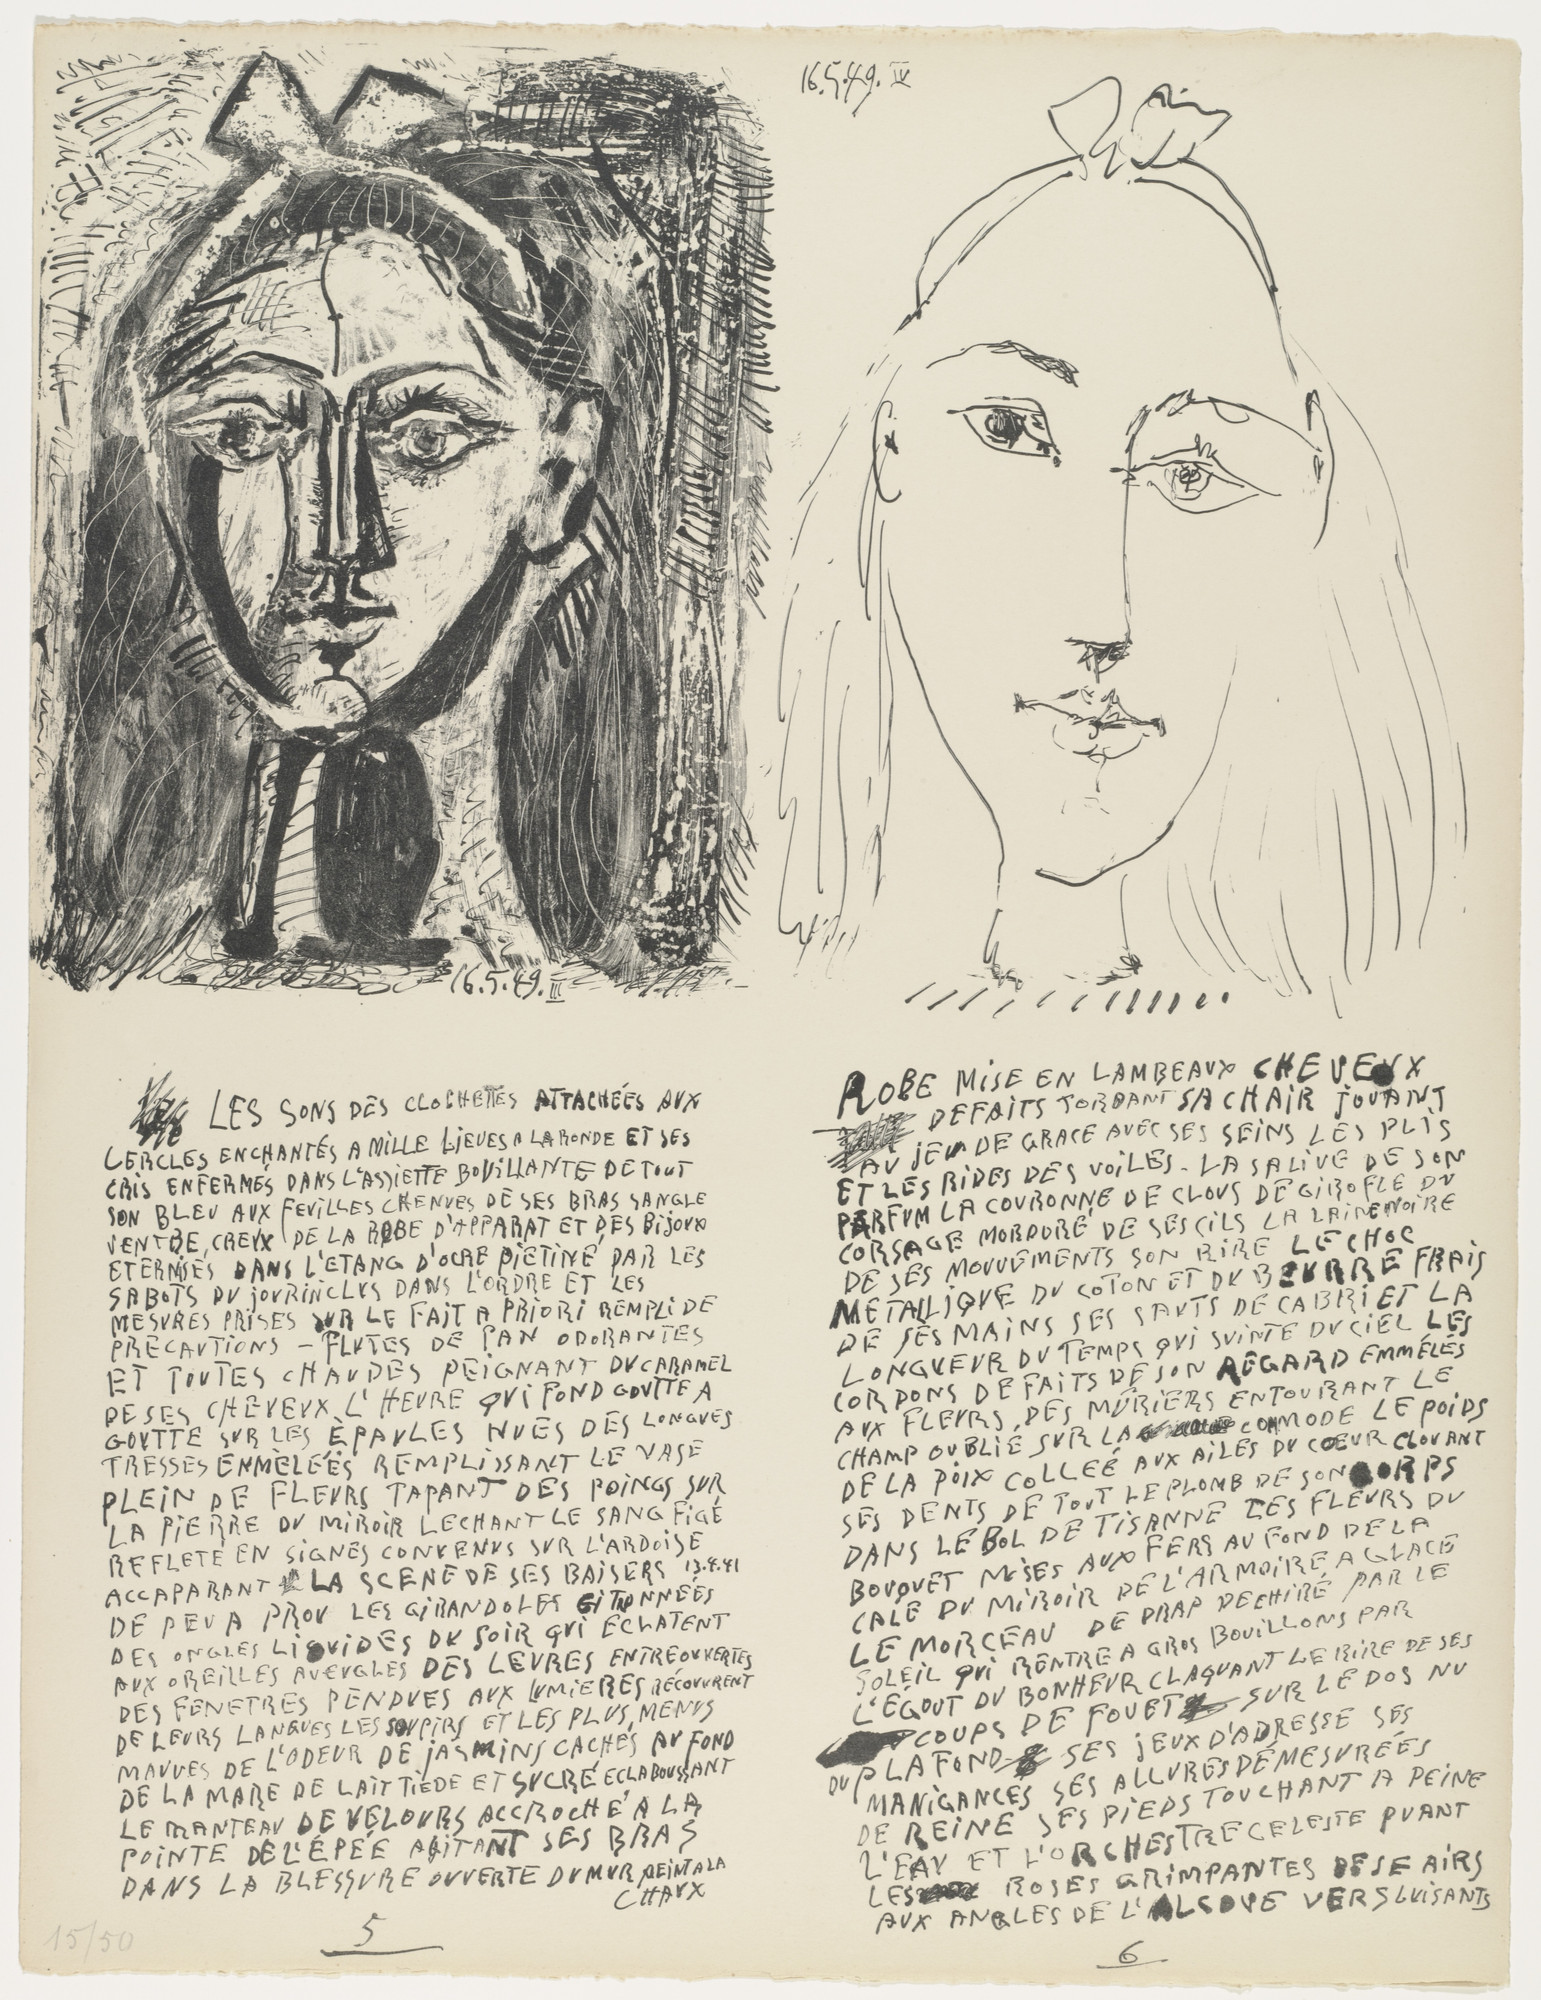 16.5.49. IV
16.5.49. III
LES SONS DES CLOCHETTES ATTACHÉES AUX
CERCLES ENCHANTÉS A MILLE LIEUES A LA RONDE ET SES
CRIS ENFERMÉS DANS L'ASSIETTE BOUILLANTE DE TOUT
SON BLEU AUX FEUILLES CHENUES DE SES BRAS SANGLE
VENTRE CREUX DE LA ROBE D'APPARAT ET DES BIJOUX
ETERNISES DANS L'ETANG D'OCRE PIETINÉ PAR LES
SABOTS DU DANS L'ORDRE ET LES
MESURES PRISES SUR LE FAIT A PRIORI REMPLI DE
PRÉCAUTIONS – FLUTES DE PAN ODORANTES
ET TOUTES CHAUDES PEIGNANT DU CARAMEL
DE SES CHEVEUX L'HEURE QUI FOND GOUTTE A
GOUTTE SUR LES ÈPAULES NUES DES LONGUES
TRESSES ENMÈLÉES REMPLISSANT LE VASE
PLEIN DE FLEURS TAPANT DES POINGS SUR
LA PIERRE DU MIROIR LECHANT LE SANG FIGÉ
REFLETE EN SIGNES CONVENUS SUR L'ARDOISE
ACCAPARANT LA SCENE DE SES BAISERS 13.4.41
DE PEU A PROU LES GIRANDOLES
DES ONGLES LIQUIDES DU SOIR QUI ECLATENT
AUX OREILLES AVEUGLES DES LEVRES ENTREOUVERTES
DES FENETRES PENDUES AUX LUMIERES RÉCOUVRENT
DE LEURS LANGUES LES SOUPIRS ET LES PLUS MENUS
MAUVES DE L'ODEUR DE JASMINS CACHÉS AU FOND
DE LA MARE DE LAIT TIÈDE ET SUCRÉ ECLABOUSSANT
LE MANTEAU DE VELOURS ACCROCHÉ A LA
POINTE DE L'ÉPÉE AGITANT SES BRAS
DANS LA BLESSURE OUVERTE DU MUR PEINT A LA
CHAUX
5
15/50
ROBE MISE EN LAMBEAUX CHEVEUX
DEFAITS TORDANT SA CHAIR JOUANT
AU JEU DE GRACE AVEC SES SEINS LES PLIS
ET LES RIDES DES VOILES – LA SALIVE DE SON
PARFUM LA COURONNE DE CLOUS DE GIROFLE DU
CORSAGE MORDORÉ DE SES CILS LA LAINE NOIRE
DE SES MOUVEMENTS SON RIRE LE CHOC
METALLIQUE DU COTON ET DU BEURRE FRAIS
DE SES MAINS SES SAUTS DE CABRI ET LA
LONGUEUR DU TEMPS QUI SUINTE DU CIEL LES
CORDONS DEFAITS DE SON REGARD EMMÉLÉS
AUX FLEURS DES MÛRIERS ENTOURANT LE
CHAMP OUBLIÉ SUR LA COMMODE LE POIDS
DE LA POIX COLLEÉ AUX AILES DU COEUR CLOUANT
SES DENTS DE TOUT LE PLOMB DE SON CORPS
DANS LE BOL DE TISANNE LES FLEURS DU
BOUQUET MISES AUX FERS AU FOND DE LA
CALE DU MIROIR DE L'ARMOIRE A GLACE
LE MORCEAU DE DRAP DECHIRÉ PAR LE
SOLEIL QUI RENTRE A GROS BOUILLONS PAR
L'EGOUT DU BONHEUR CLAQUANT LE RIRE DE SES
COUPS DE FOUET SUR LE DOS NU
DU PLAFOND SES JEUX D'ADRESSE SES
MANIGANCES SES ALLURES DÉMESURÉES
DE REINE SES PIEDS TOUCHANT A PEINE
L'EAU ET L'ORCHESTRE CELESTE PUANT
LES ROSES GRIMPANTES AIRS
AUX ANGLES DE L'ALCOVE VERS LUISANTS
6